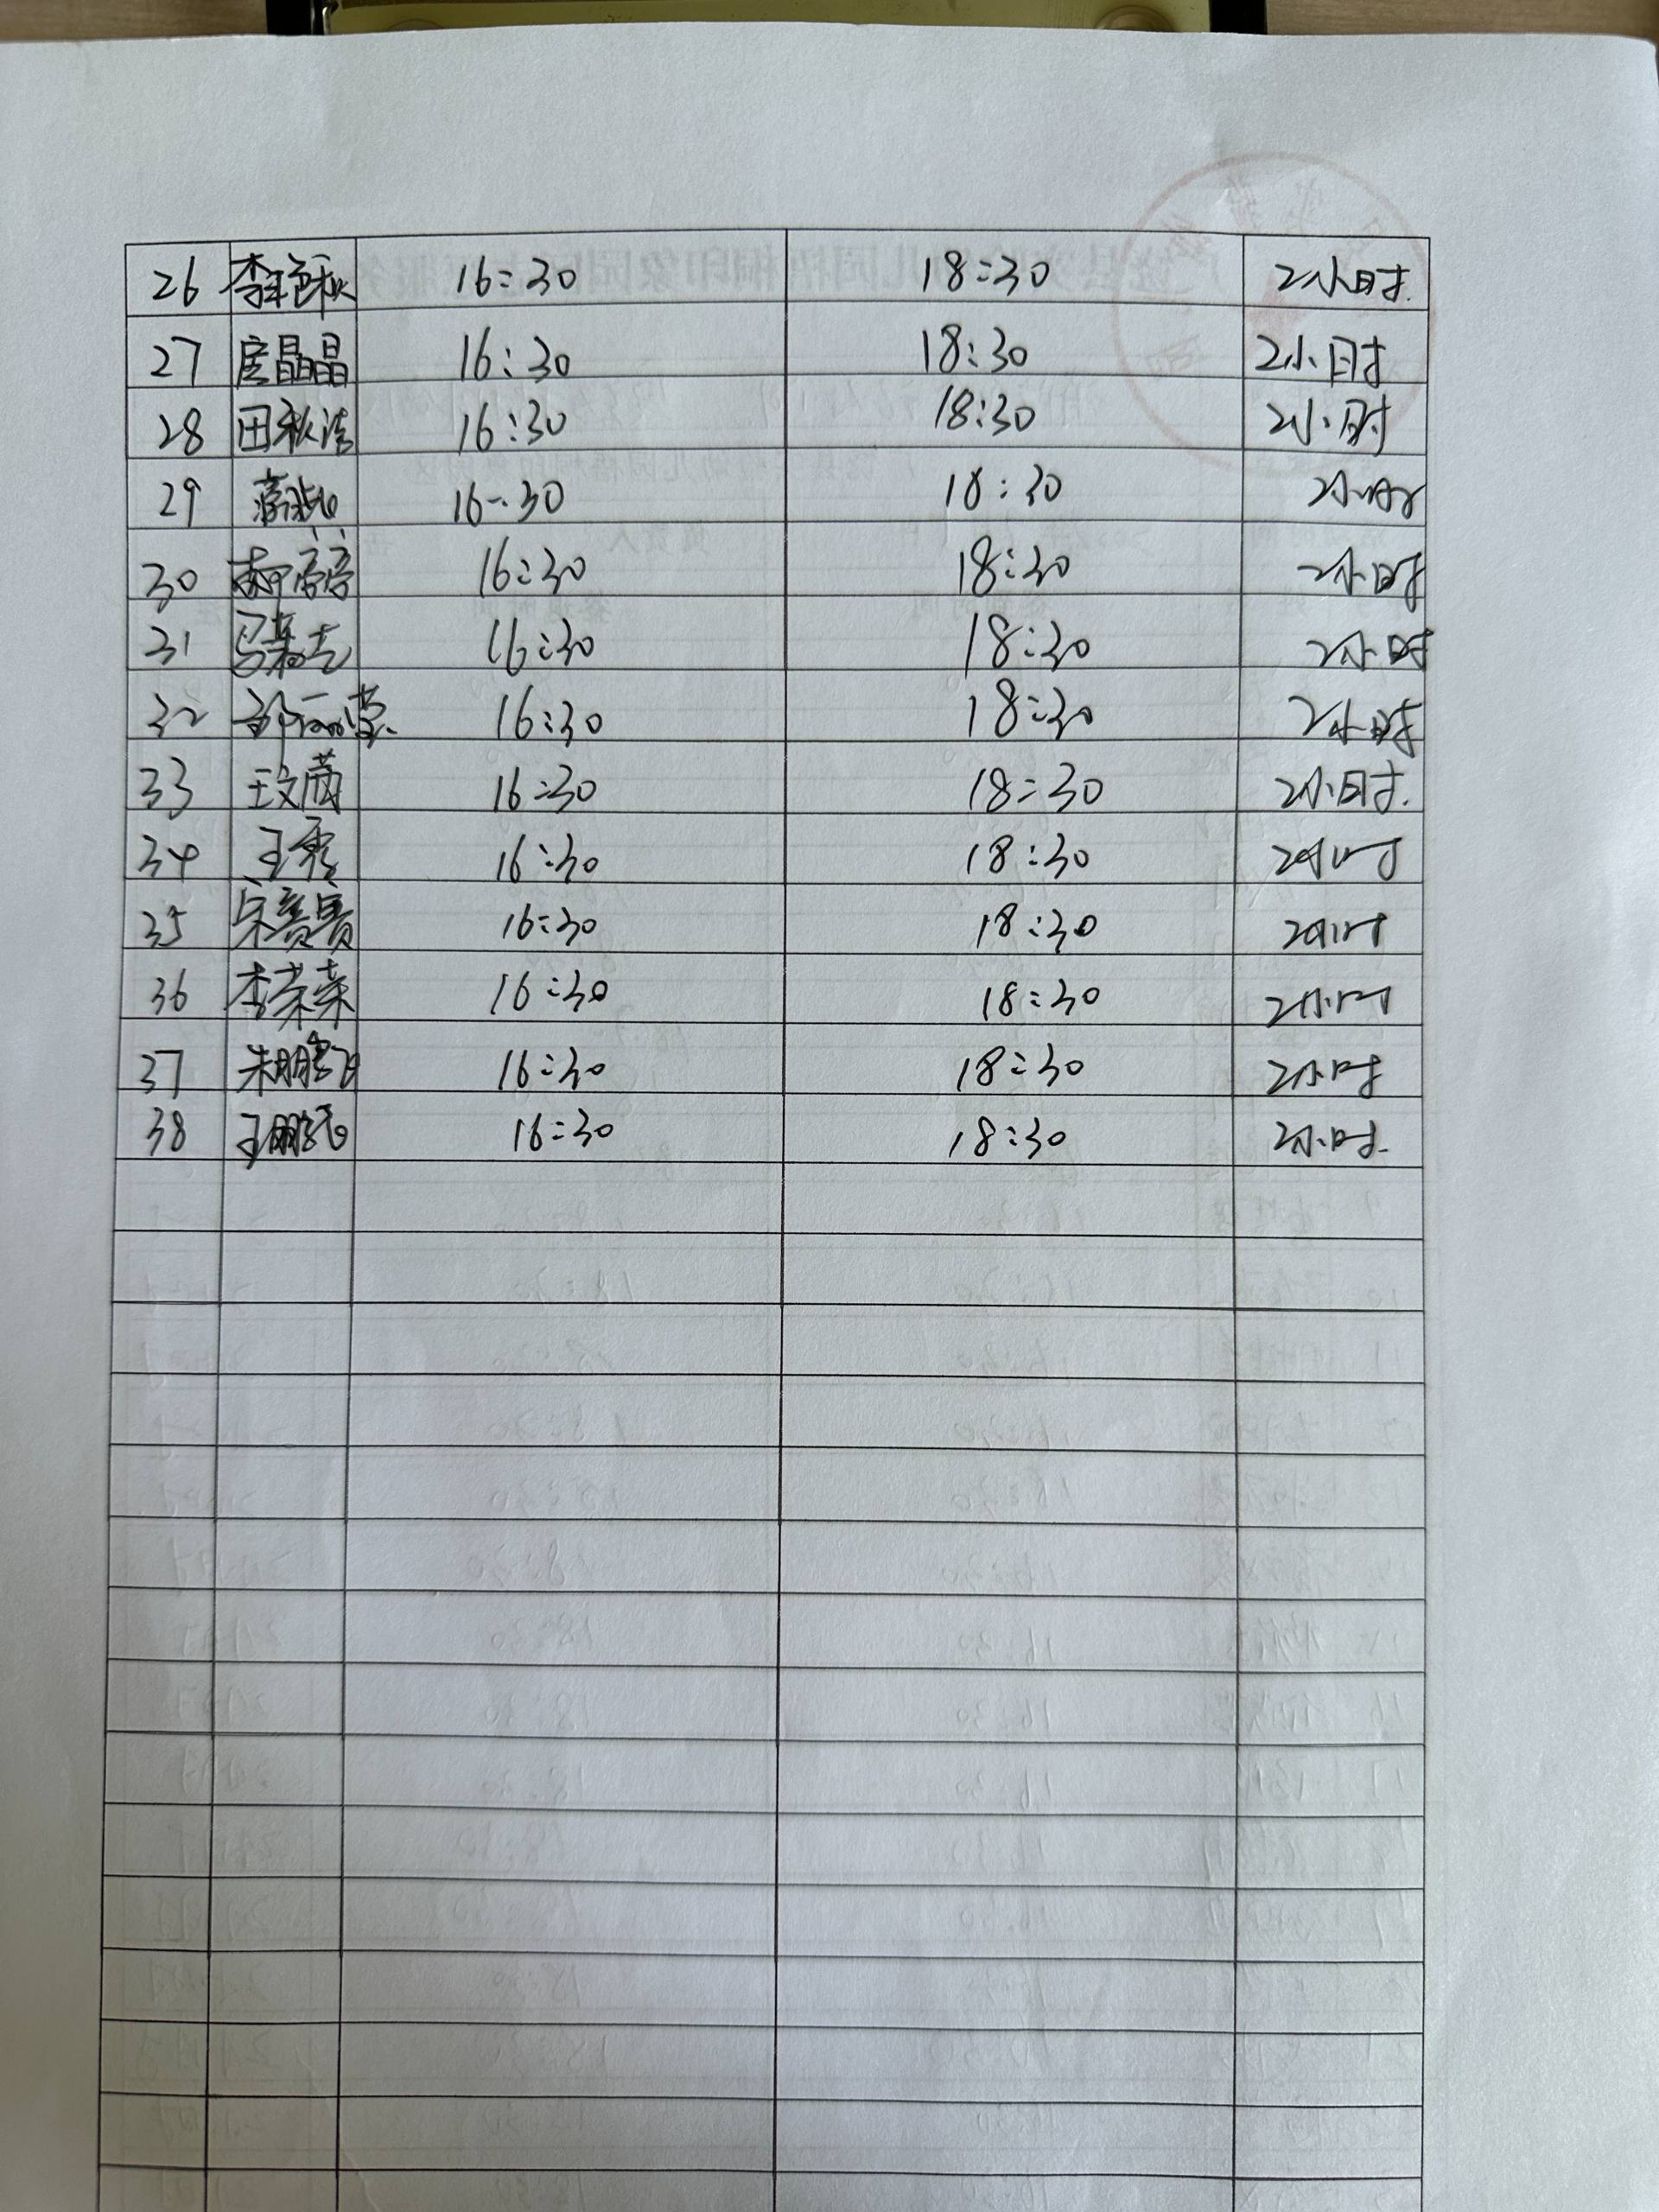 26 李艳秋 16:30 18:30 2小时.
27 房晶晶 16:30 18:30 2小时
28 田秋洁 16:30 18:30 2小时
29 16:30 18:30 2小时
30 16:30 18:30 2小时
31 16:30 18:30 2小时
32 16:30 18:30 2小时
33 王文茵 16:30 18:30 2小时.
34 王秀 16:30 18:30 2小时
35 宋赛赛 16:30 18:30 2小时
36 李荣荣 16:30 18:30 2小时
37 朱鹏飞 16:30 18:30 2小时
38 王鹏飞 16:30 18:30 2小时.